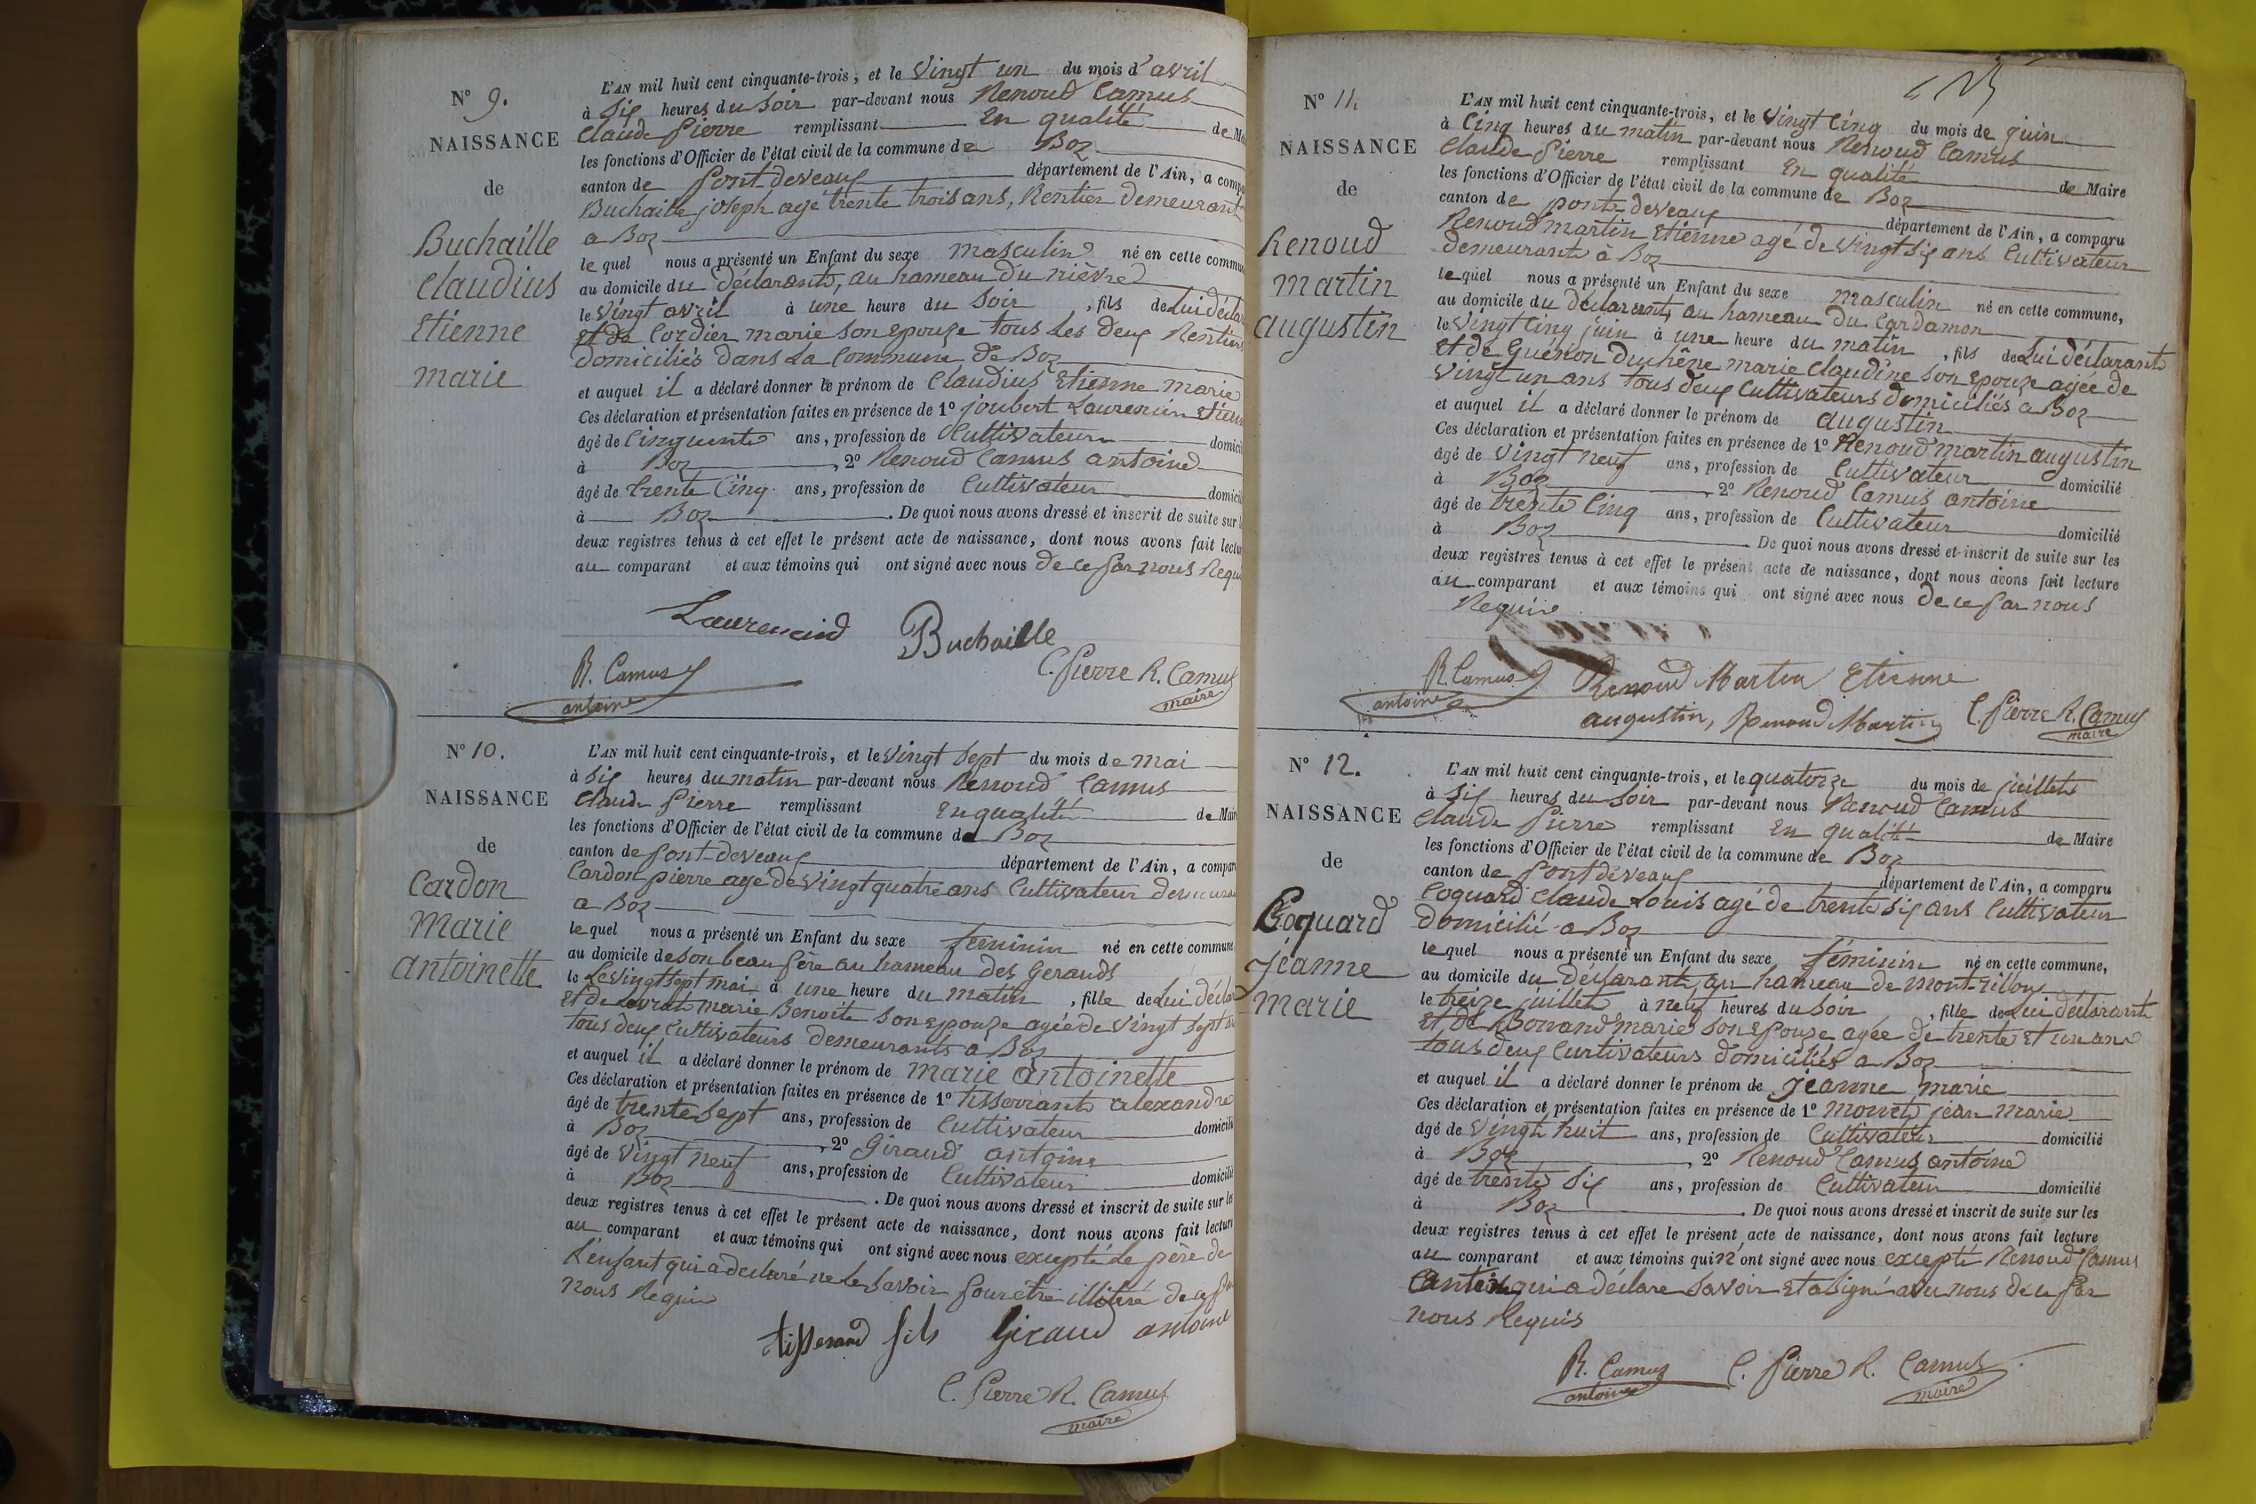 N° 9.
NAISSANCE
de
Buchaille
Claudius
Etienne
marie
L'AN mil huit cent cinquante-trois, et le vingt un du mois d'avril
à six heures du soir par-devant nous Renoud Camus
Claude Pierre remplissant En qualité de Mai
les fonctions d'Officier de l'état civil de la commune de Boz
canton de pont-deveaux département de l'Ain, a compa
Buchaille joseph agé trente trois ans, Rentier demeurant
a Boz
le quel nous a présenté un Enfant du sexe masculin né en cette commun
au domicile du déclarant, au hameau du nièvre
le vingt avril à une heure du soir, fils de Lui décla
Et de Cordier marie son epouze tous les deux Rentiers
domiciliés dans la Commune de Boz
et auquel il a déclaré donner le prénom de Claudius Etienne marie
Ces déclaration et présentation faites en présence de 1° joubert Laurencin Etien
âgé de Cinquante ans, profession de Cultivateur domicil
à Boz, 2° Renoud Camus antoine
âgé de trente Cinq ans, profession de Cultivateur domicil
à Boz. De quoi nous avons dressé et inscrit de suite sur l
deux registres tenus à cet effet le présent acte de naissance, dont nous avons fait lectu
au comparant et aux témoins qui ont signé avec nous de ce par nous Requi
Laurencin Buchaille
R. Camus C. Pierre R. Camus
antoine maire
N° 10.
NAISSANCE
de
Cardon
Marie
antoinette
L'AN mil huit cent cinquante-trois, et le vingt sept du mois de mai
à six heures du matin par-devant nous Renoud Camus
Claude Pierre remplissant En qualité de Mair
les fonctions d'Officier de l'état civil de la commune de Boz
canton de pont-deveaux département de l'Ain, a compar
Cardon pierre agé de vingt quatre ans Cultivateur demeuran
a Boz
le quel nous a présenté un Enfant du sexe feminin né en cette commune
au domicile de son beau père au hameau des Gerauds
le Le vingt sept mai à une heure du matin, fille de Lui décla
Et de marie Benoite son epouze agée de vingt sept
tous deux Cultivateurs demeurants a Boz
et auquel il a déclaré donner le prénom de marie antoinette
Ces déclaration et présentation faites en présence de 1° tisserrant alexandre
âgé de trente sept ans, profession de Cultivateur domicili
à Boz, 2° Giraud antoine
âgé de vingt neuf ans, profession de Cultivateur domicilié
à Boz. De quoi nous avons dressé et inscrit de suite sur les
deux registres tenus à cet effet le présent acte de naissance, dont nous avons fait lecture
au comparant et aux témoins qui ont signé avec nous excepté le père de
L'enfant qui a declaré ne le savoir pour etre illitéré de ce par
nous Requis
tisserand fils Giraud antoine
C. Pierre R. Camus
maire
N° 11.
NAISSANCE
de
Renoud
martin
augustin
L'AN mil huit cent cinquante-trois, et le vingt Cinq du mois de juin
à Cinq heures du matin par-devant nous Renoud Camus
Claude Pierre remplissant En qualité de Maire
les fonctions d'Officier de l'état civil de la commune de Boz
canton de pont-deveaux département de l'Ain, a comparu
Renoud martin Etienne agé de vingt six ans Cultivateur
demeurant à Boz
le quel nous a présenté un Enfant du sexe masculin né en cette commune,
au domicile du déclarant, au hameau du Cardamon
le vingt Cinq juin à une heure du matin, fils de Lui déclarant
Et de Guérion duchêne marie Claudine son epouze agée de
vingt un ans tous deux Cultivateurs domiciliés a Boz
et auquel il a déclaré donner le prénom de augustin
Ces déclaration et présentation faites en présence de 1° Renoud martin augustin
âgé de vingt neuf ans, profession de Cultivateur domicilié
à Boz, 2° Renoud Camus antoine
âgé de trente Cinq ans, profession de Cultivateur domicilié
à Boz. De quoi nous avons dressé et inscrit de suite sur les
deux registres tenus à cet effet le présent acte de naissance, dont nous avons fait lecture
au comparant et aux témoins qui ont signé avec nous de ce par nous
Requis
R. Camus Renoud Martin Etienne
antoine augustin, Renoud Martin C. Pierre R. Camus
maire
N° 12.
NAISSANCE
de
Coquard
jeanne
marie
L'AN mil huit cent cinquante-trois, et le quatorze du mois de juillet
à six heures du soir par-devant nous Renoud Camus
Claude Pierre remplissant En qualité de Maire
les fonctions d'Officier de l'état civil de la commune de Boz
canton de pont-deveaux département de l'Ain, a comparu
Coquard Claude Louis agé de trente six ans Cultivateur
domicilié a Boz
le quel nous a présenté un Enfant du sexe féminin né en cette commune,
au domicile du déclarant, au hameau de mont-rillon
le treize juillet à neuf heures du soir, fille de Lui déclarant
Et de Borrand marie son epouze agée de trente Et un ans
tous deux Curtivateurs domiciliés a Boz
et auquel il a déclaré donner le prénom de jeanne marie
Ces déclaration et présentation faites en présence de 1° jean marie
âgé de vingt huit ans, profession de Cultivateur domicilié
à Boz, 2° Renoud Camus antoine
âgé de trente six ans, profession de Cultivateur domicilié
à Boz. De quoi nous avons dressé et inscrit de suite sur les
deux registres tenus à cet effet le présent acte de naissance, dont nous avons fait lecture
au comparant et aux témoins qui n'ont signé avec nous excepté Renoud Camus
antoine qui a declare savoir Et a signé avec nous de ce par
nous Requis
R. Camus C. Pierre R. Camus
antoine maire